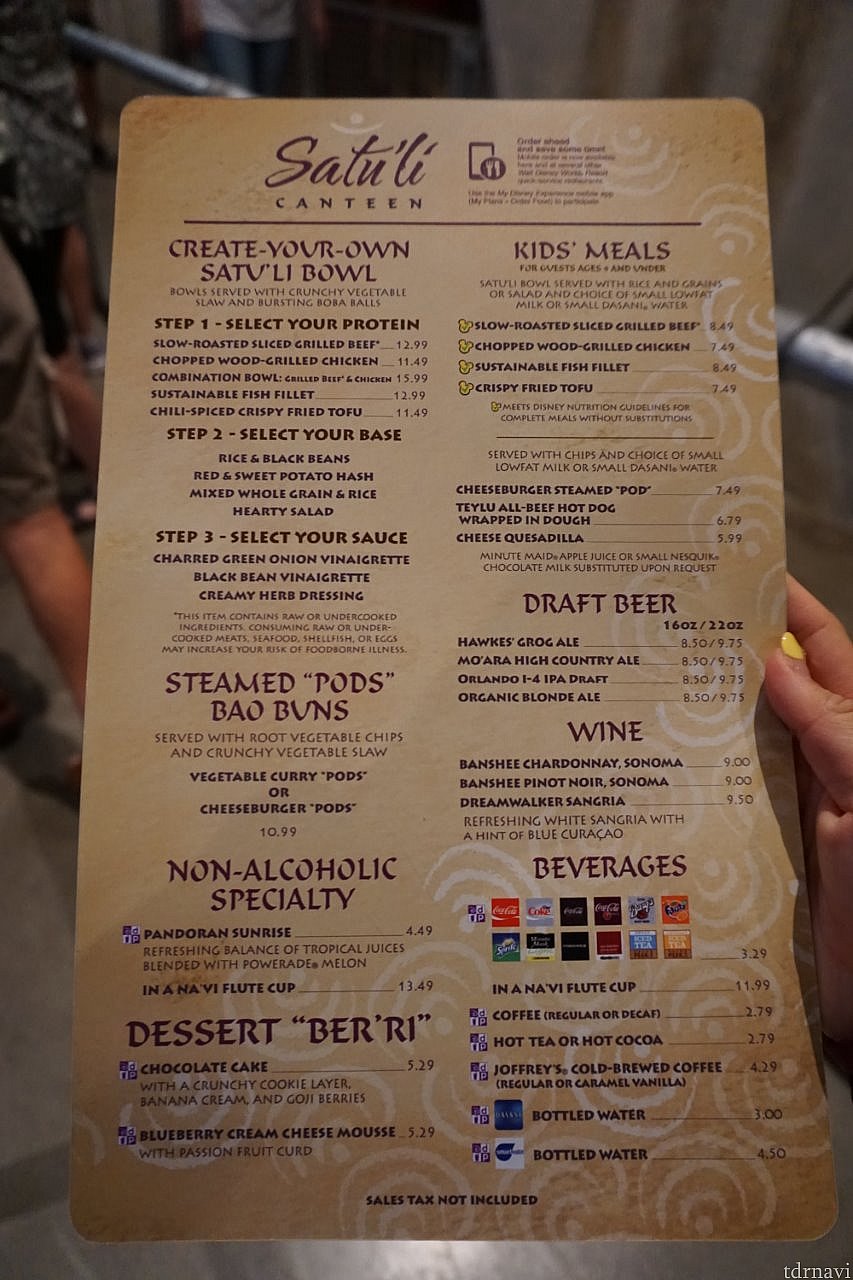 Satu'li
CANTEEN
Order ahead
and save some time!
Mobile order is now available
here and at several other
Walt Disney World Resort
quick-service restaurants.
Use the My Disney Experience mobile app
(My Plans – Order Food) to participate
CREATE-YOUR-OWN
SATU'LI BOWL
BOWLS SERVED WITH CRUNCHY VEGETABLE
SLAW AND BURSTING BOBA BALLS
STEP 1 - SELECT YOUR PROTEIN
SLOW-ROASTED SLICED GRILLED BEEF* 12.99
CHOPPED WOOD-GRILLED CHICKEN 11.49
COMBINATION BOWL: GRILLED BEEF* & CHICKEN 15.99
SUSTAINABLE FISH FILLET 12.99
CHILI-SPICED CRISPY FRIED TOFU 11.49
STEP 2 - SELECT YOUR BASE
RICE & BLACK BEANS
RED & SWEET POTATO HASH
MIXED WHOLE GRAIN & RICE
HEARTY SALAD
STEP 3 - SELECT YOUR SAUCE
CHARRED GREEN ONION VINAIGRETTE
BLACK BEAN VINAIGRETTE
CREAMY HERB DRESSING
*THIS ITEM CONTAINS RAW OR UNDERCOOKED
INGREDIENTS. CONSUMING RAW OR UNDER-
COOKED MEATS, SEAFOOD, SHELLFISH, OR EGGS
MAY INCREASE YOUR RISK OF FOODBORNE ILLNESS.
STEAMED "PODS"
BAO BUNS
SERVED WITH ROOT VEGETABLE CHIPS
AND CRUNCHY VEGETABLE SLAW
VEGETABLE CURRY "PODS"
OR
CHEESEBURGER "PODS"
10.99
NON-ALCOHOLIC
SPECIALTY
PANDORAN SUNRISE 4.49
REFRESHING BALANCE OF TROPICAL JUICES
BLENDED WITH POWERADE® MELON
IN A NA'VI FLUTE CUP 13.49
DESSERT "BER'RI"
CHOCOLATE CAKE 5.29
WITH A CRUNCHY COOKIE LAYER,
BANANA CREAM, AND GOJI BERRIES
BLUEBERRY CREAM CHEESE MOUSSE 5.29
WITH PASSION FRUIT CURD
KIDS' MEALS
FOR GUESTS AGES 9 AND UNDER
SATU'LI BOWL SERVED WITH RICE AND GRAINS
OR SALAD AND CHOICE OF SMALL LOWFAT
MILK OR SMALL DASANI® WATER
SLOW-ROASTED SLICED GRILLED BEEF* 8.49
CHOPPED WOOD-GRILLED CHICKEN 7.49
SUSTAINABLE FISH FILLET 8.49
CRISPY FRIED TOFU 7.49
MEETS DISNEY NUTRITION GUIDELINES FOR
COMPLETE MEALS WITHOUT SUBSTITUTIONS
SERVED WITH CHIPS AND CHOICE OF SMALL
LOWFAT MILK OR SMALL DASANI® WATER
CHEESEBURGER STEAMED "POD" 7.49
TEYLU ALL-BEEF HOT DOG
WRAPPED IN DOUGH 6.79
CHEESE QUESADILLA 5.99
MINUTE MAID® APPLE JUICE OR SMALL NESQUIK®
CHOCOLATE MILK SUBSTITUTED UPON REQUEST
DRAFT BEER
16OZ/22OZ
HAWKES' GROG ALE 8.50/9.75
MO'ARA HIGH COUNTRY ALE 8.50/9.75
ORLANDO I-4 IPA DRAFT 8.50/9.75
ORGANIC BLONDE ALE 8.50/9.75
WINE
BANSHEE CHARDONNAY, SONOMA 9.00
BANSHEE PINOT NOIR, SONOMA 9.00
DREAMWALKER SANGRIA 9.50
REFRESHING WHITE SANGRIA WITH
A HINT OF BLUE CURAÇAO
BEVERAGES
Coca-Cola Coke Coca-Cola Coca-Cola Barq's Fanta
Sprite Minute Maid ICED TEA ICED TEA
3.29
IN A NA'VI FLUTE CUP 11.99
COFFEE (REGULAR OR DECAF) 2.79
HOT TEA OR HOT COCOA 2.79
JOFFREY'S® COLD-BREWED COFFEE 4.29
(REGULAR OR CARAMEL VANILLA)
DASANI BOTTLED WATER 3.00
smartwater BOTTLED WATER 4.50
SALES TAX NOT INCLUDED
tdrnavi